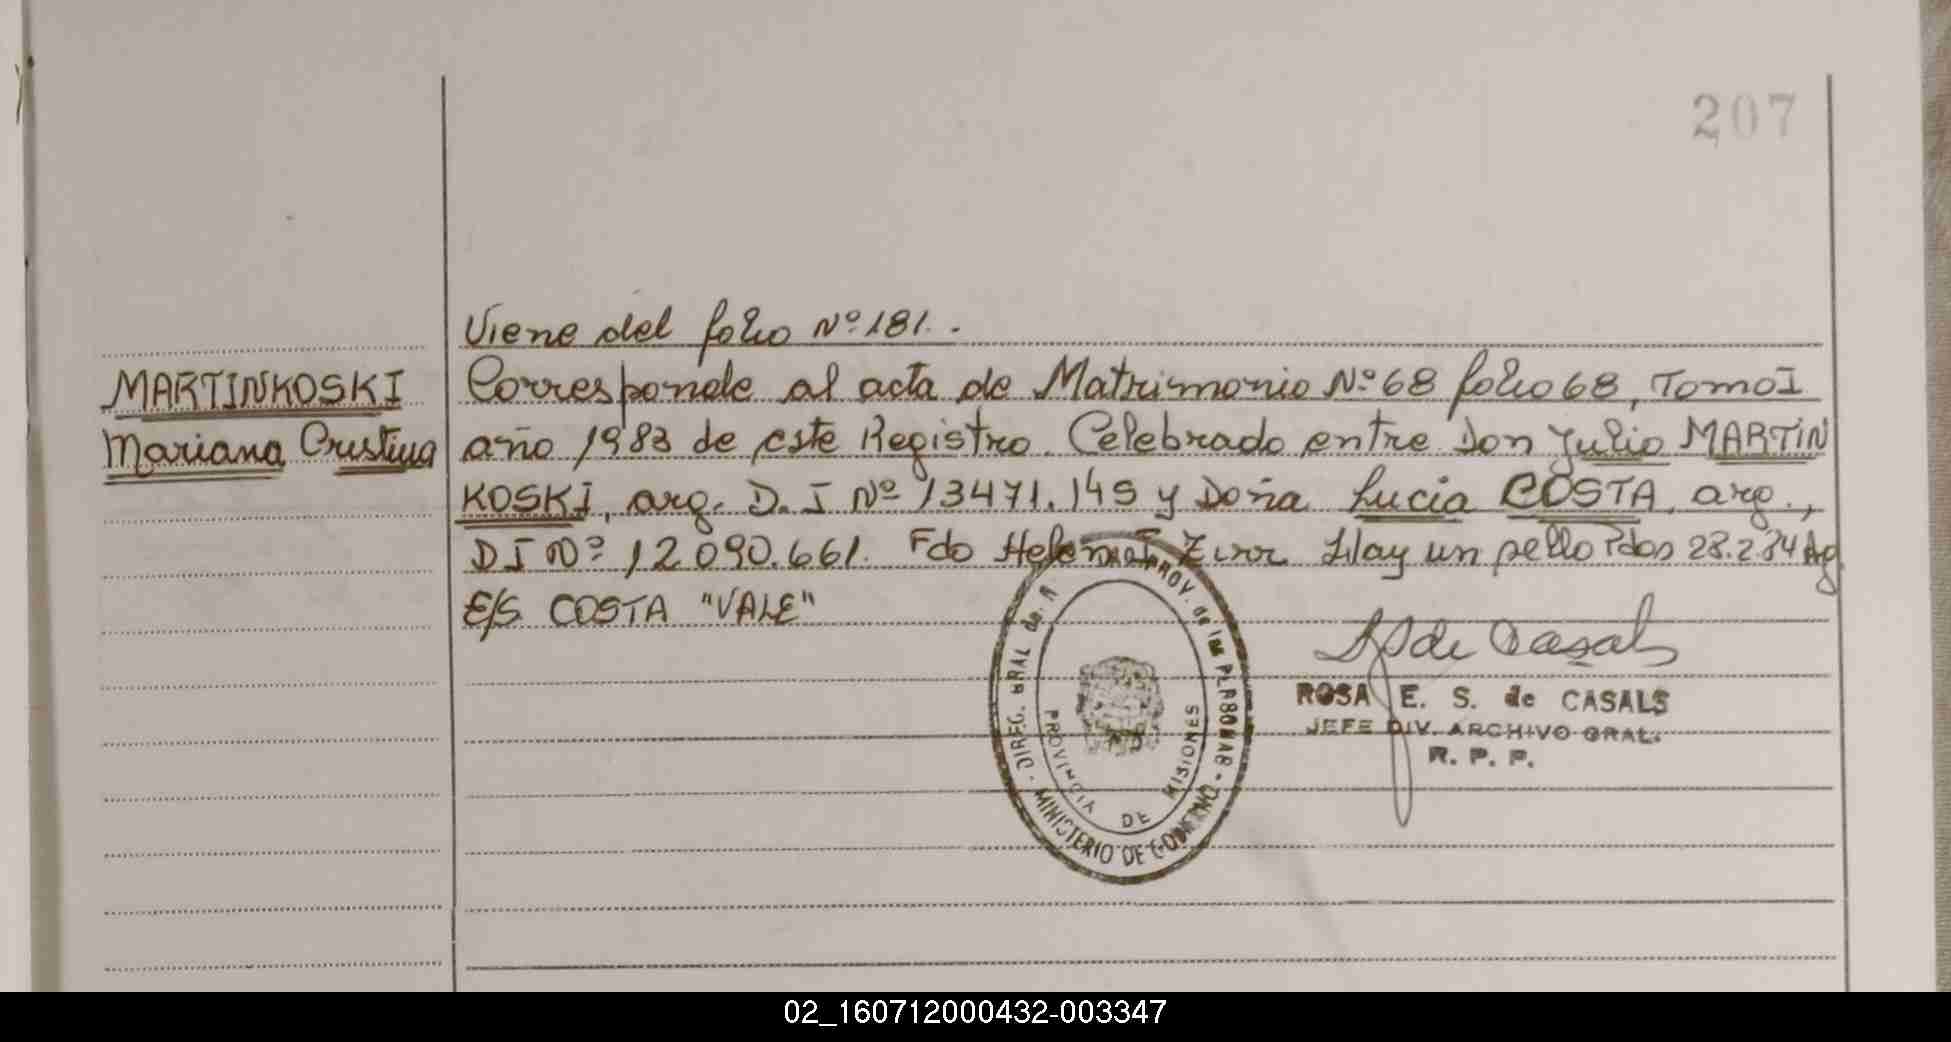 207
Viene del folio Nº 181.-
MARTINKOSKI
Mariana Cristina
Corresponde al acta de Matrimonio Nº 68 folio 68, Tomo I
año 1983 de este Registro. Celebrado entre Don Julio MARTIN
KOSKI, arg. D.I Nº 13471.145 y Doña Lucia COSTA, arg.,
DI Nº 12.090.661. Fdo Helena Zurr Hay un sello Pdas 28.2.84 Ag
E/S COSTA "VALE"
DIREC. GRAL de. R PROV. de las PERSONAS - MINISTERIO DE GOBIERNO -
PROVINCIA DE MISIONES
de Casals
ROSA E. S. de CASALS
JEFE DIV. ARCHIVO GRAL.
R. P. P.
02_160712000432-003347